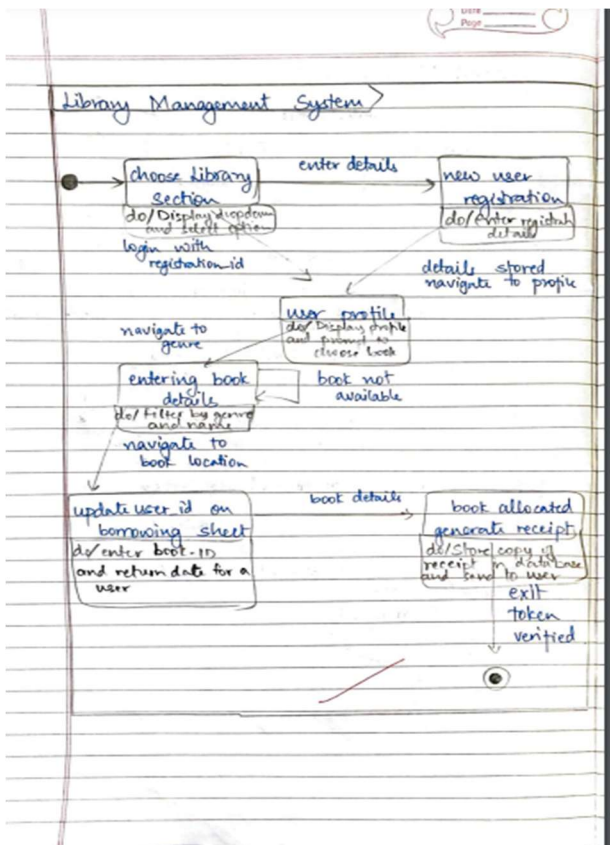 Date
Page
Library Management System
choose Library
Section
do/Display dropdown
and select option
enter details
new user
registration
do/enter
details
login with
registration_id
details stored
navigate to profile
user profile
do/Display profile
and prompt to
choose book
navigate to
genre
entering book
details
do/filter by genre
and name
book not
available
navigate to
book location
update user_id on
borrowing sheet
do/enter book-ID
and return date for a
user
book details
book allocated
generate receipt
do/Store copy of
receipt in database
and send to user
exit
token
verified